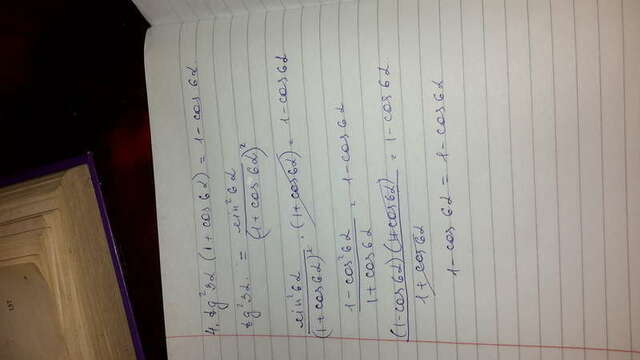 4. tg²3α (1 + cos 6α) = 1 - cos 6α
tg²3α = sin²6α / (1 + cos 6α)²
sin²6α / (1 + cos 6α)² · (1 + cos 6α) = 1 - cos 6α
1 - cos²6α / 1 + cos 6α = 1 - cos 6α
(1 - cos 6α)(1 + cos 6α) / 1 + cos 6α = 1 - cos 6α
1 - cos 6α = 1 - cos 6α